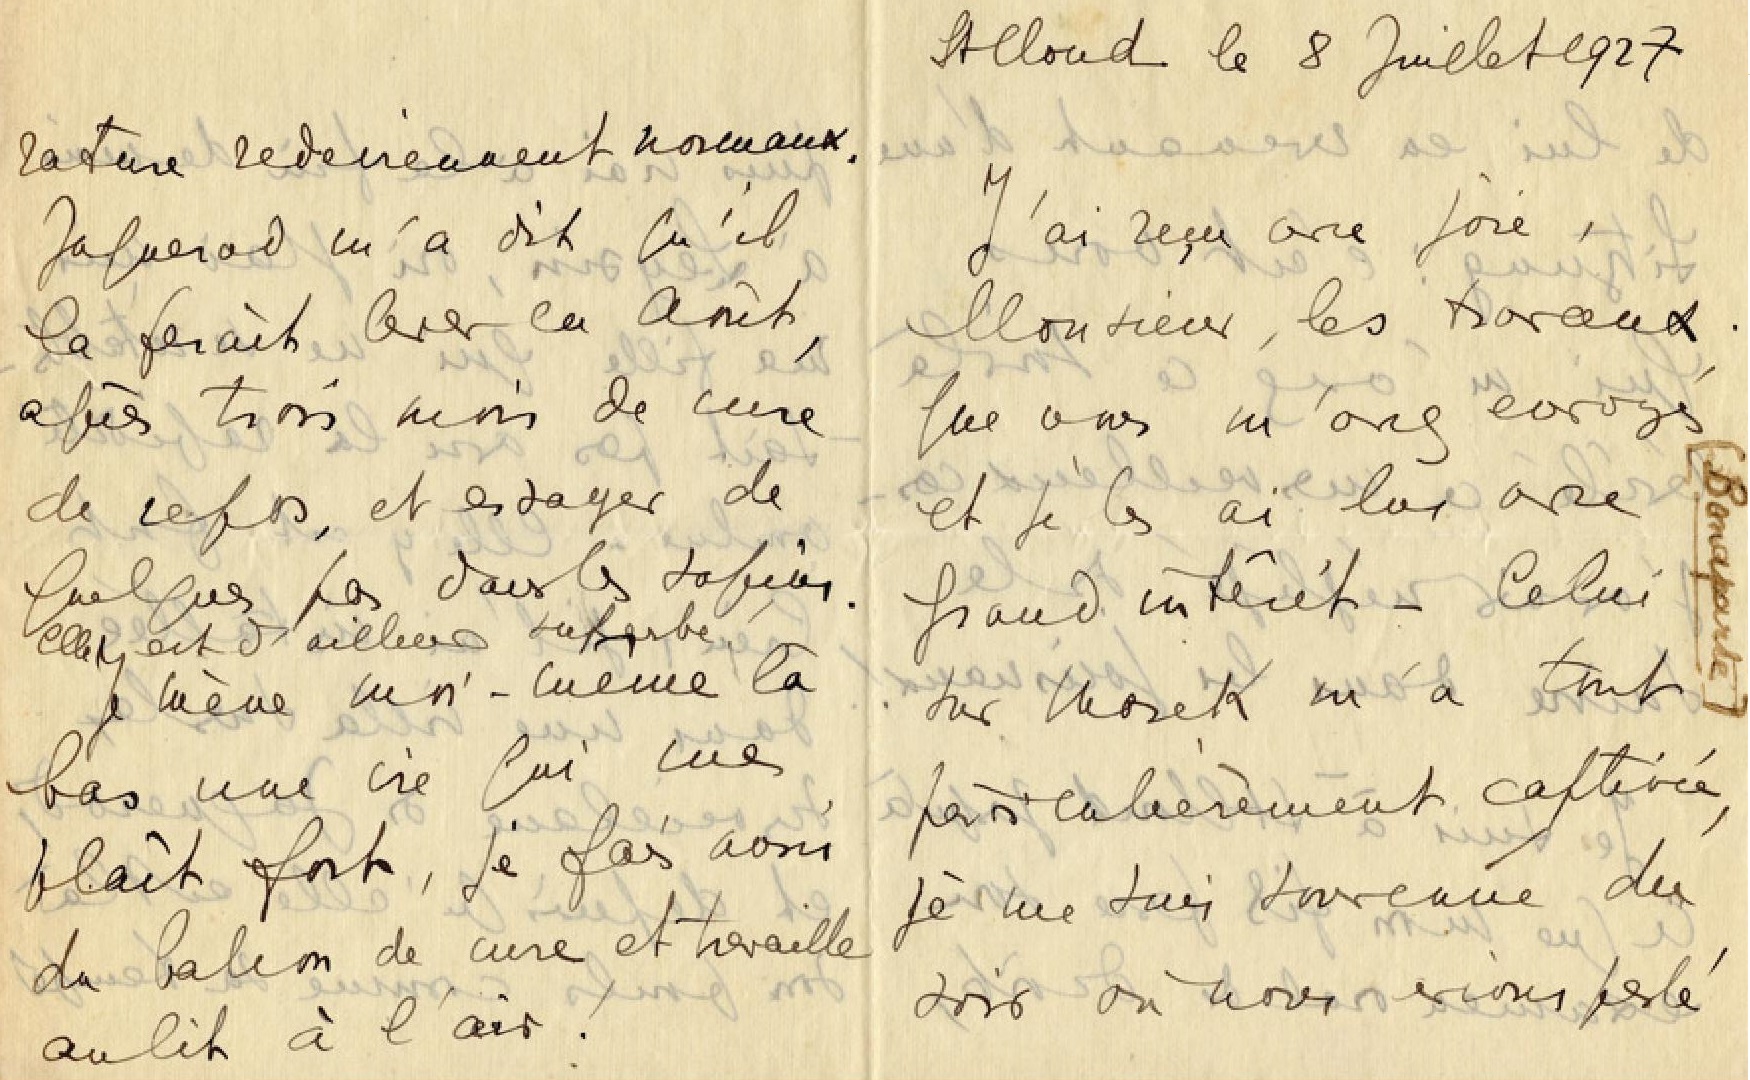 St Cloud le 8 Juillet 1927
J'ai reçu avec joie,
Monsieur, les travaux
que vous m'avez envoyés
et je les ai lus avec
grand intérêt - Celui
sur Morek m'a tout
particulièrement captivée,
je me suis souvenue du
soir où nous avions parlé
[Bonaparte]
rature redeviennent normaux.
Jaquerod m'a dit qu'il
la ferait lever en Août,
après trois mois de cure
de repos, et essayer de
quelques pas dans les sapins.
Elle y est d'ailleurs superbe.
Je mène moi-même là
bas une vie qui me
plaît fort, je fais aussi
du balcon de cure et travaille
au lit à l'air !